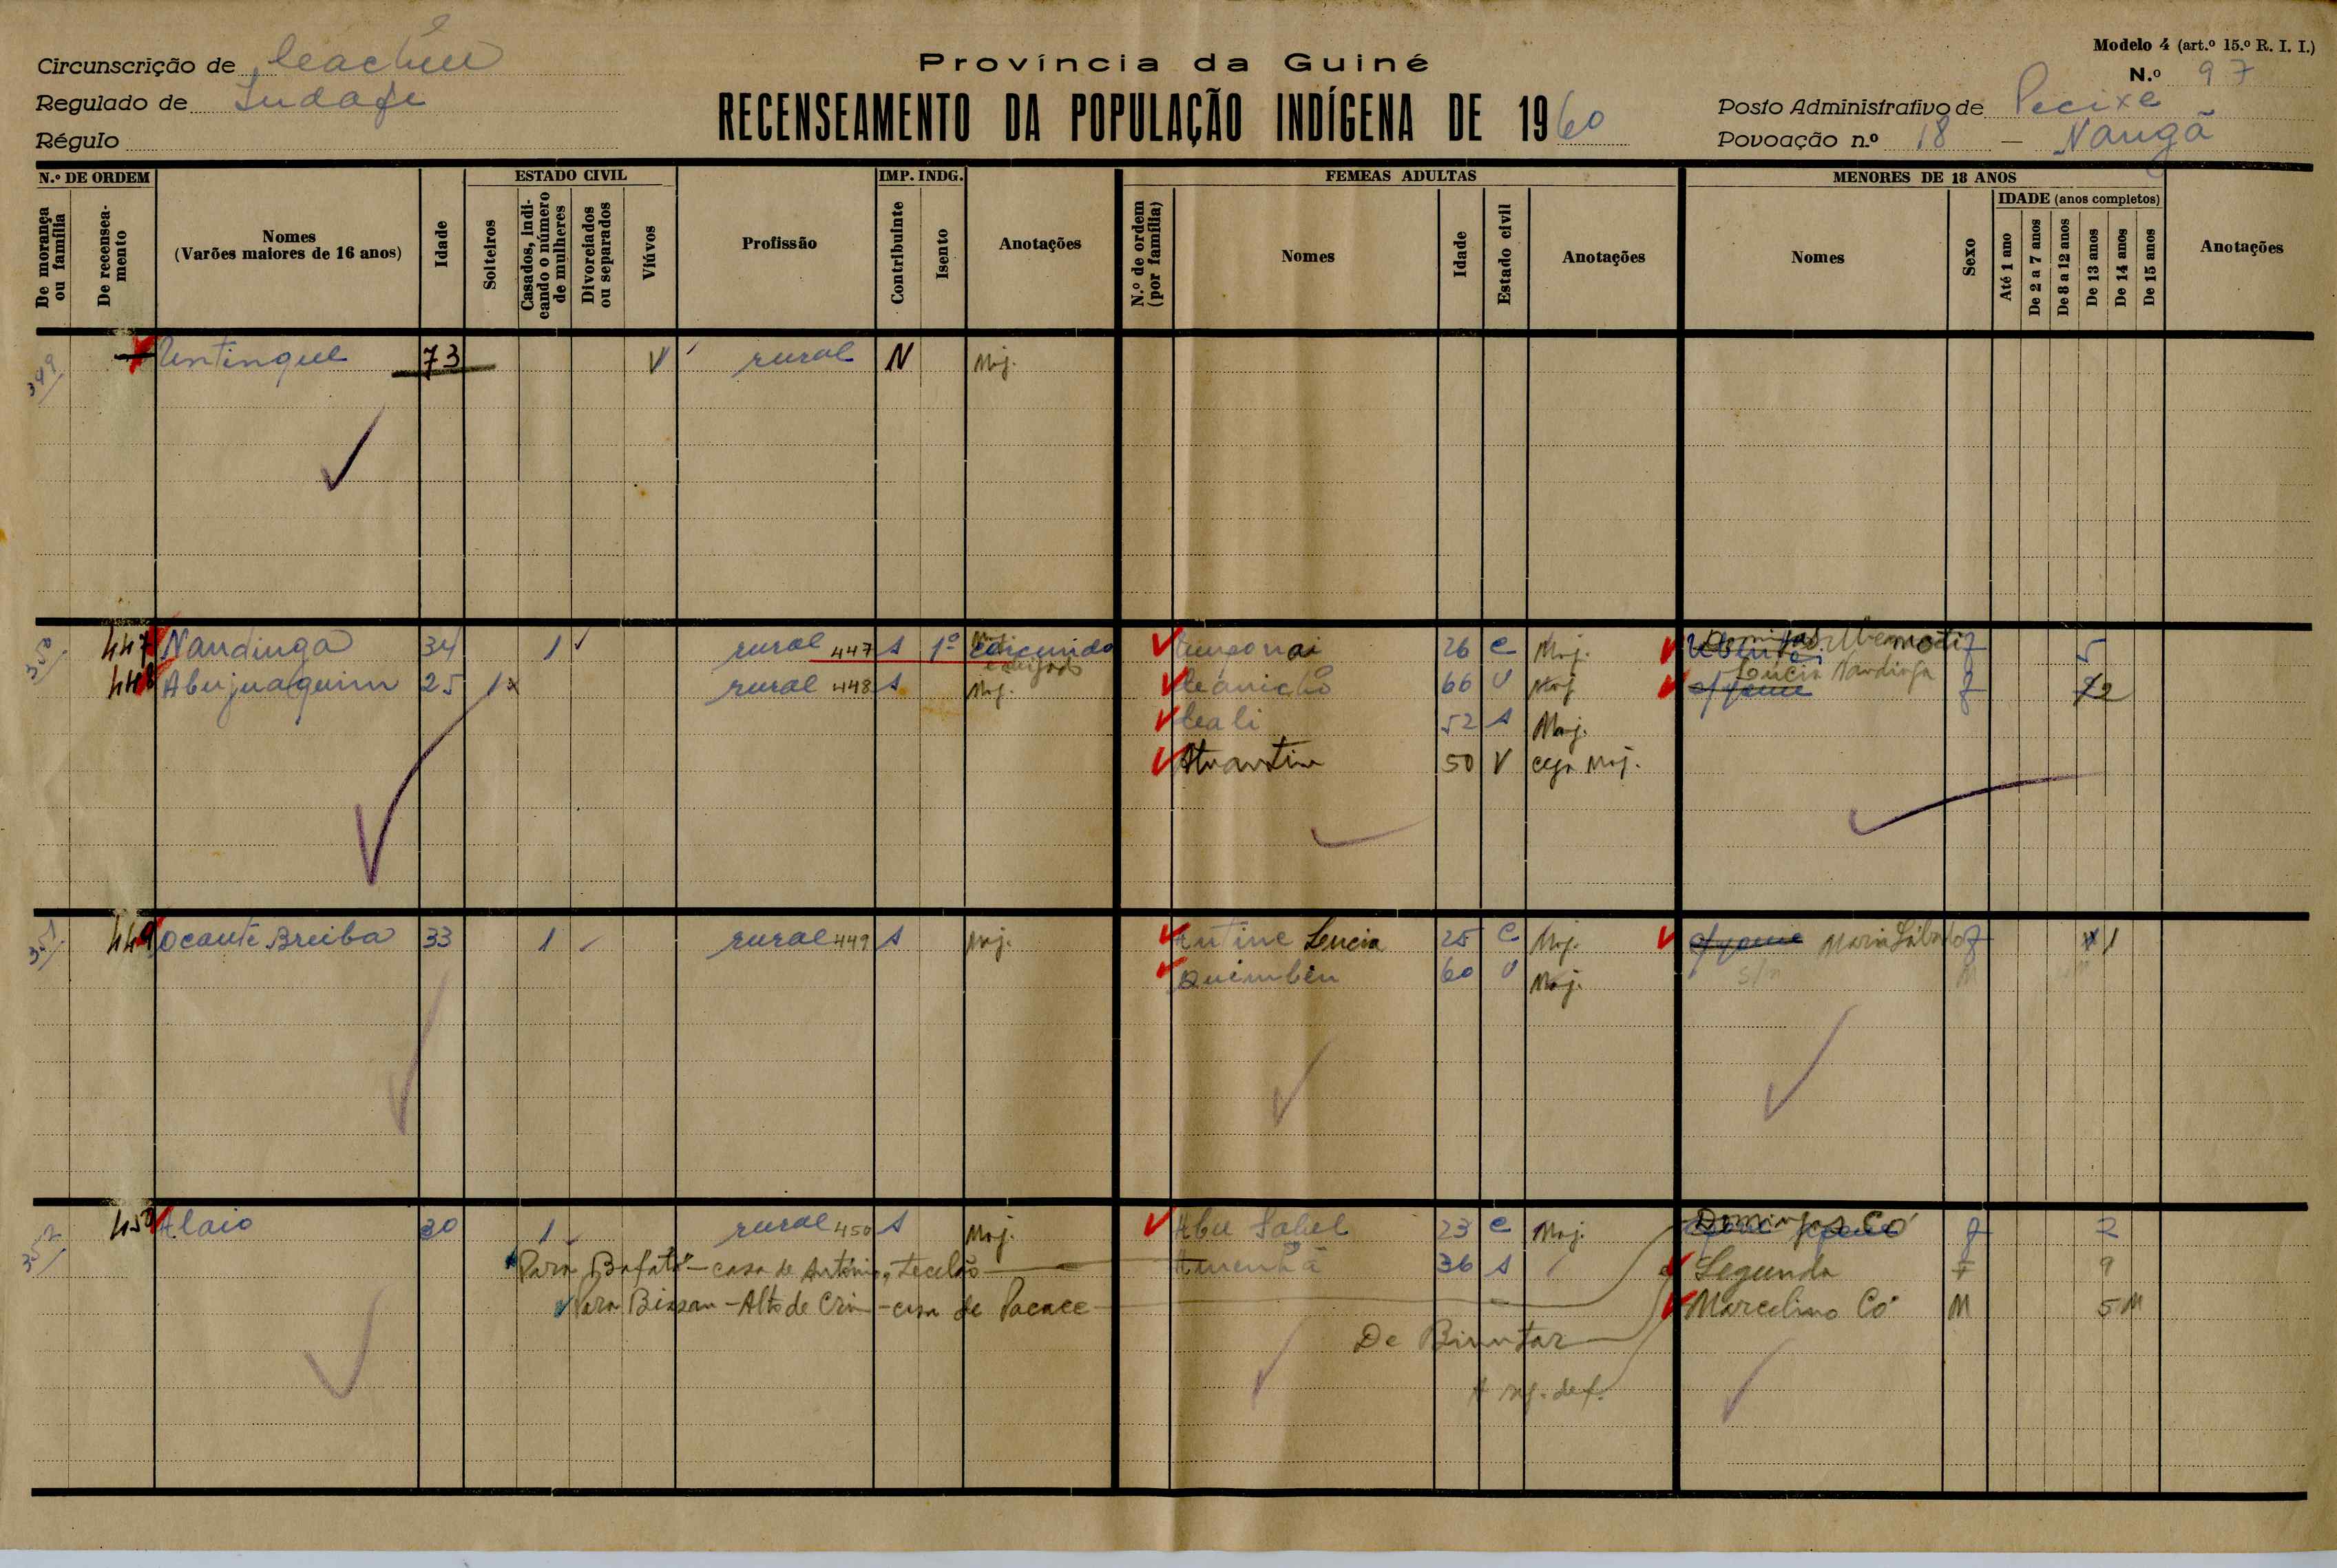 Modelo 4 (art.º 15.º R. I. I.)
Circunscrição de
Província da Guiné
N.º 97
Regulado de
RECENSEAMENTO DA POPULAÇÃO INDÍGENA DE 1960
Posto Administrativo de Pecixe
Régulo
Povoação n.º 18 — Nangã
N.º DE ORDEM
De morança ou família
De recenseamento
Nomes
(Varões maiores de 16 anos)
Idade
ESTADO CIVIL
Solteiros
Casados, indicando o número de mulheres
Divorciados ou separados
Viúvos
Profissão
IMP. INDG.
Contribuinte
Isento
Anotações
FEMEAS ADULTAS
N.º de ordem (por família)
Nomes
Idade
Estado civil
Anotações
MENORES DE 18 ANOS
Nomes
Sexo
IDADE (anos completos)
Até 1 ano
De 2 a 7 anos
De 8 a 12 anos
De 13 anos
De 14 anos
De 15 anos
Anotações
349 Untinque 73 V rural N Maj.
350 447 Nandinga 34 1 rural 447 S 1º 26 C Maj. f 5
448 Abujuaquim 25 1 rural 448 S Maj. 66 V Maj. Lúcia Nandinga f 2
52 S Maj.
50 V cega Maj.
351 449 Ocante Breiba 33 1 rural 449 S Maj. Antine Lencia 25 C Maj. f 1
Quimbem 60 V Maj. s/n M
352 450 Alaio 30 1 rural 450 S Maj. Abu 23 C Maj. Domingas Có f 2
Para Bafatá — casa de António, tecelão 36 S Segunda F 9
Para Bissau — Alto de Crim — casa de Pacace Marcelino Có M 5 M
De Binutar